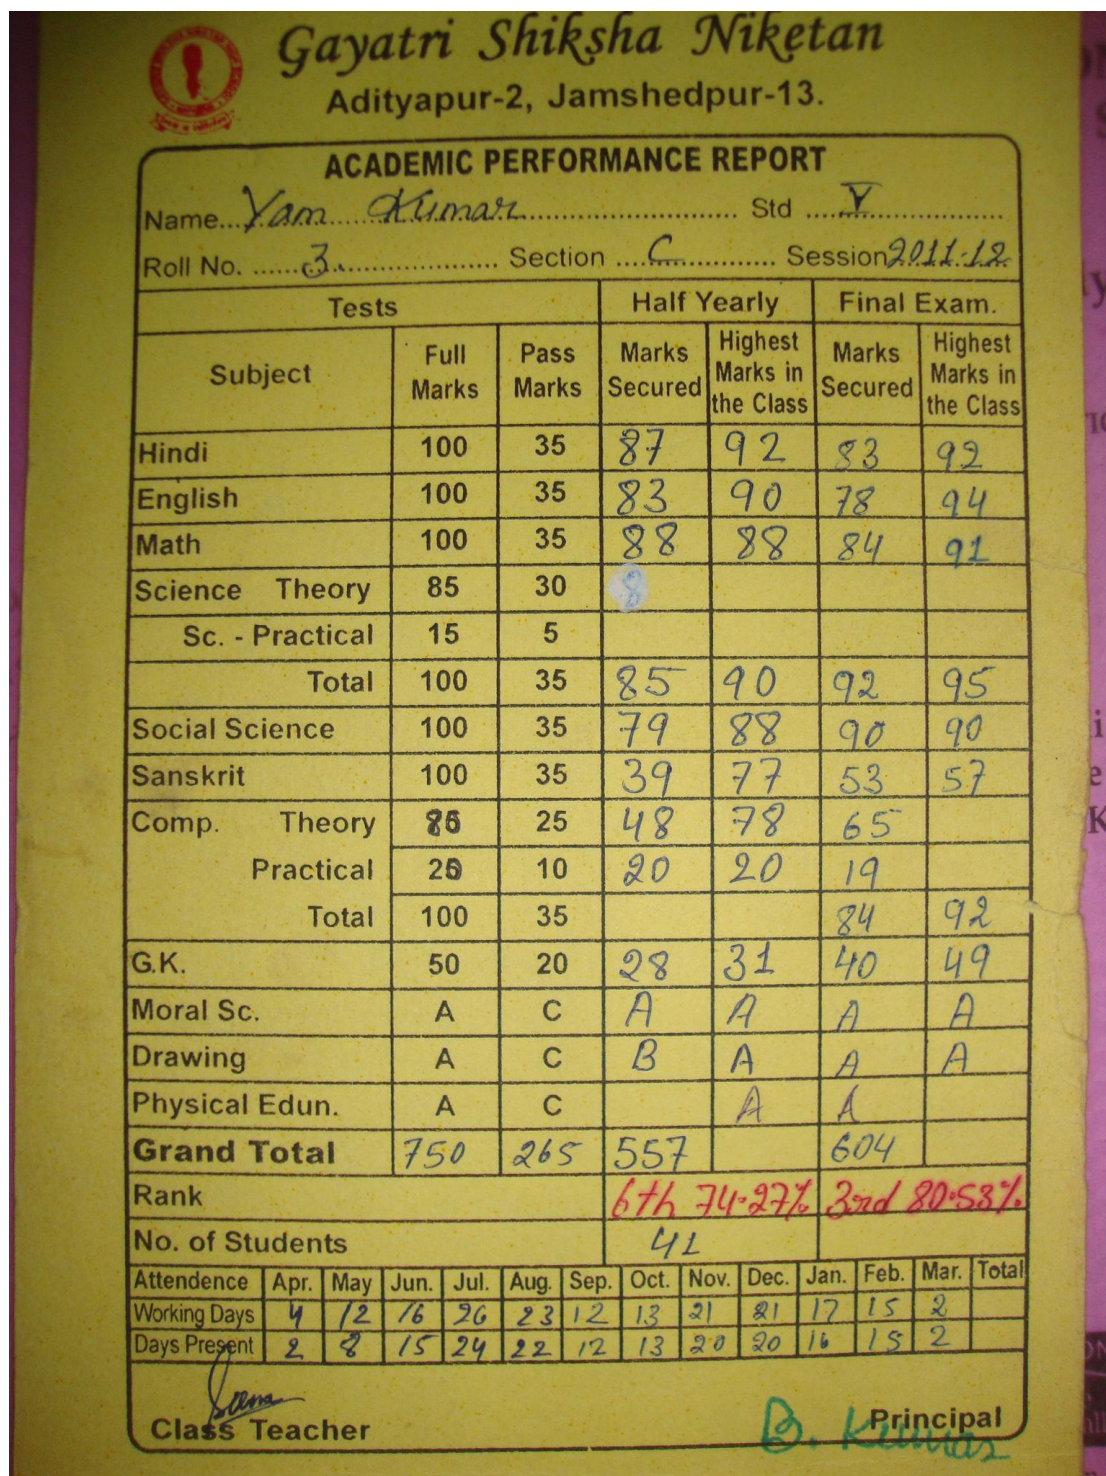 Gayatri Shiksha Niketan
Adityapur-2, Jamshedpur-13.
ACADEMIC PERFORMANCE REPORT
Name...Yam Kumar........ Std ....V........
Roll No. ......3............ Section ....C........ Session 2011-12
Tests Half Yearly Final Exam.
Subject Full Marks Pass Marks Marks Secured Highest Marks in the Class Marks Secured Highest Marks in the Class
Hindi 100 35 87 92 83 92
English 100 35 83 90 78 94
Math 100 35 88 88 84 91
Science Theory 85 30 8
Sc. - Practical 15 5
Total 100 35 85 90 92 95
Social Science 100 35 79 88 90 90
Sanskrit 100 35 39 77 53 57
Comp. Theory 25 48 78 65
Practical 10 20 20 19
Total 100 35 84 92
G.K. 50 20 28 31 40 49
Moral Sc. A C A A A A
Drawing A C B A A A
Physical Edun. A C A A
Grand Total 750 265 557 604
Rank 6th 74.27% 3rd 80.53%
No. of Students 41
Attendence Apr. May Jun. Jul. Aug. Sep. Oct. Nov. Dec. Jan. Feb. Mar. Total
Working Days 4 12 16 26 23 12 13 21 21 17 15 2
Days Present 2 8 15 24 22 12 13 20 20 16 15 2
Class Teacher Principal
B. Kumar